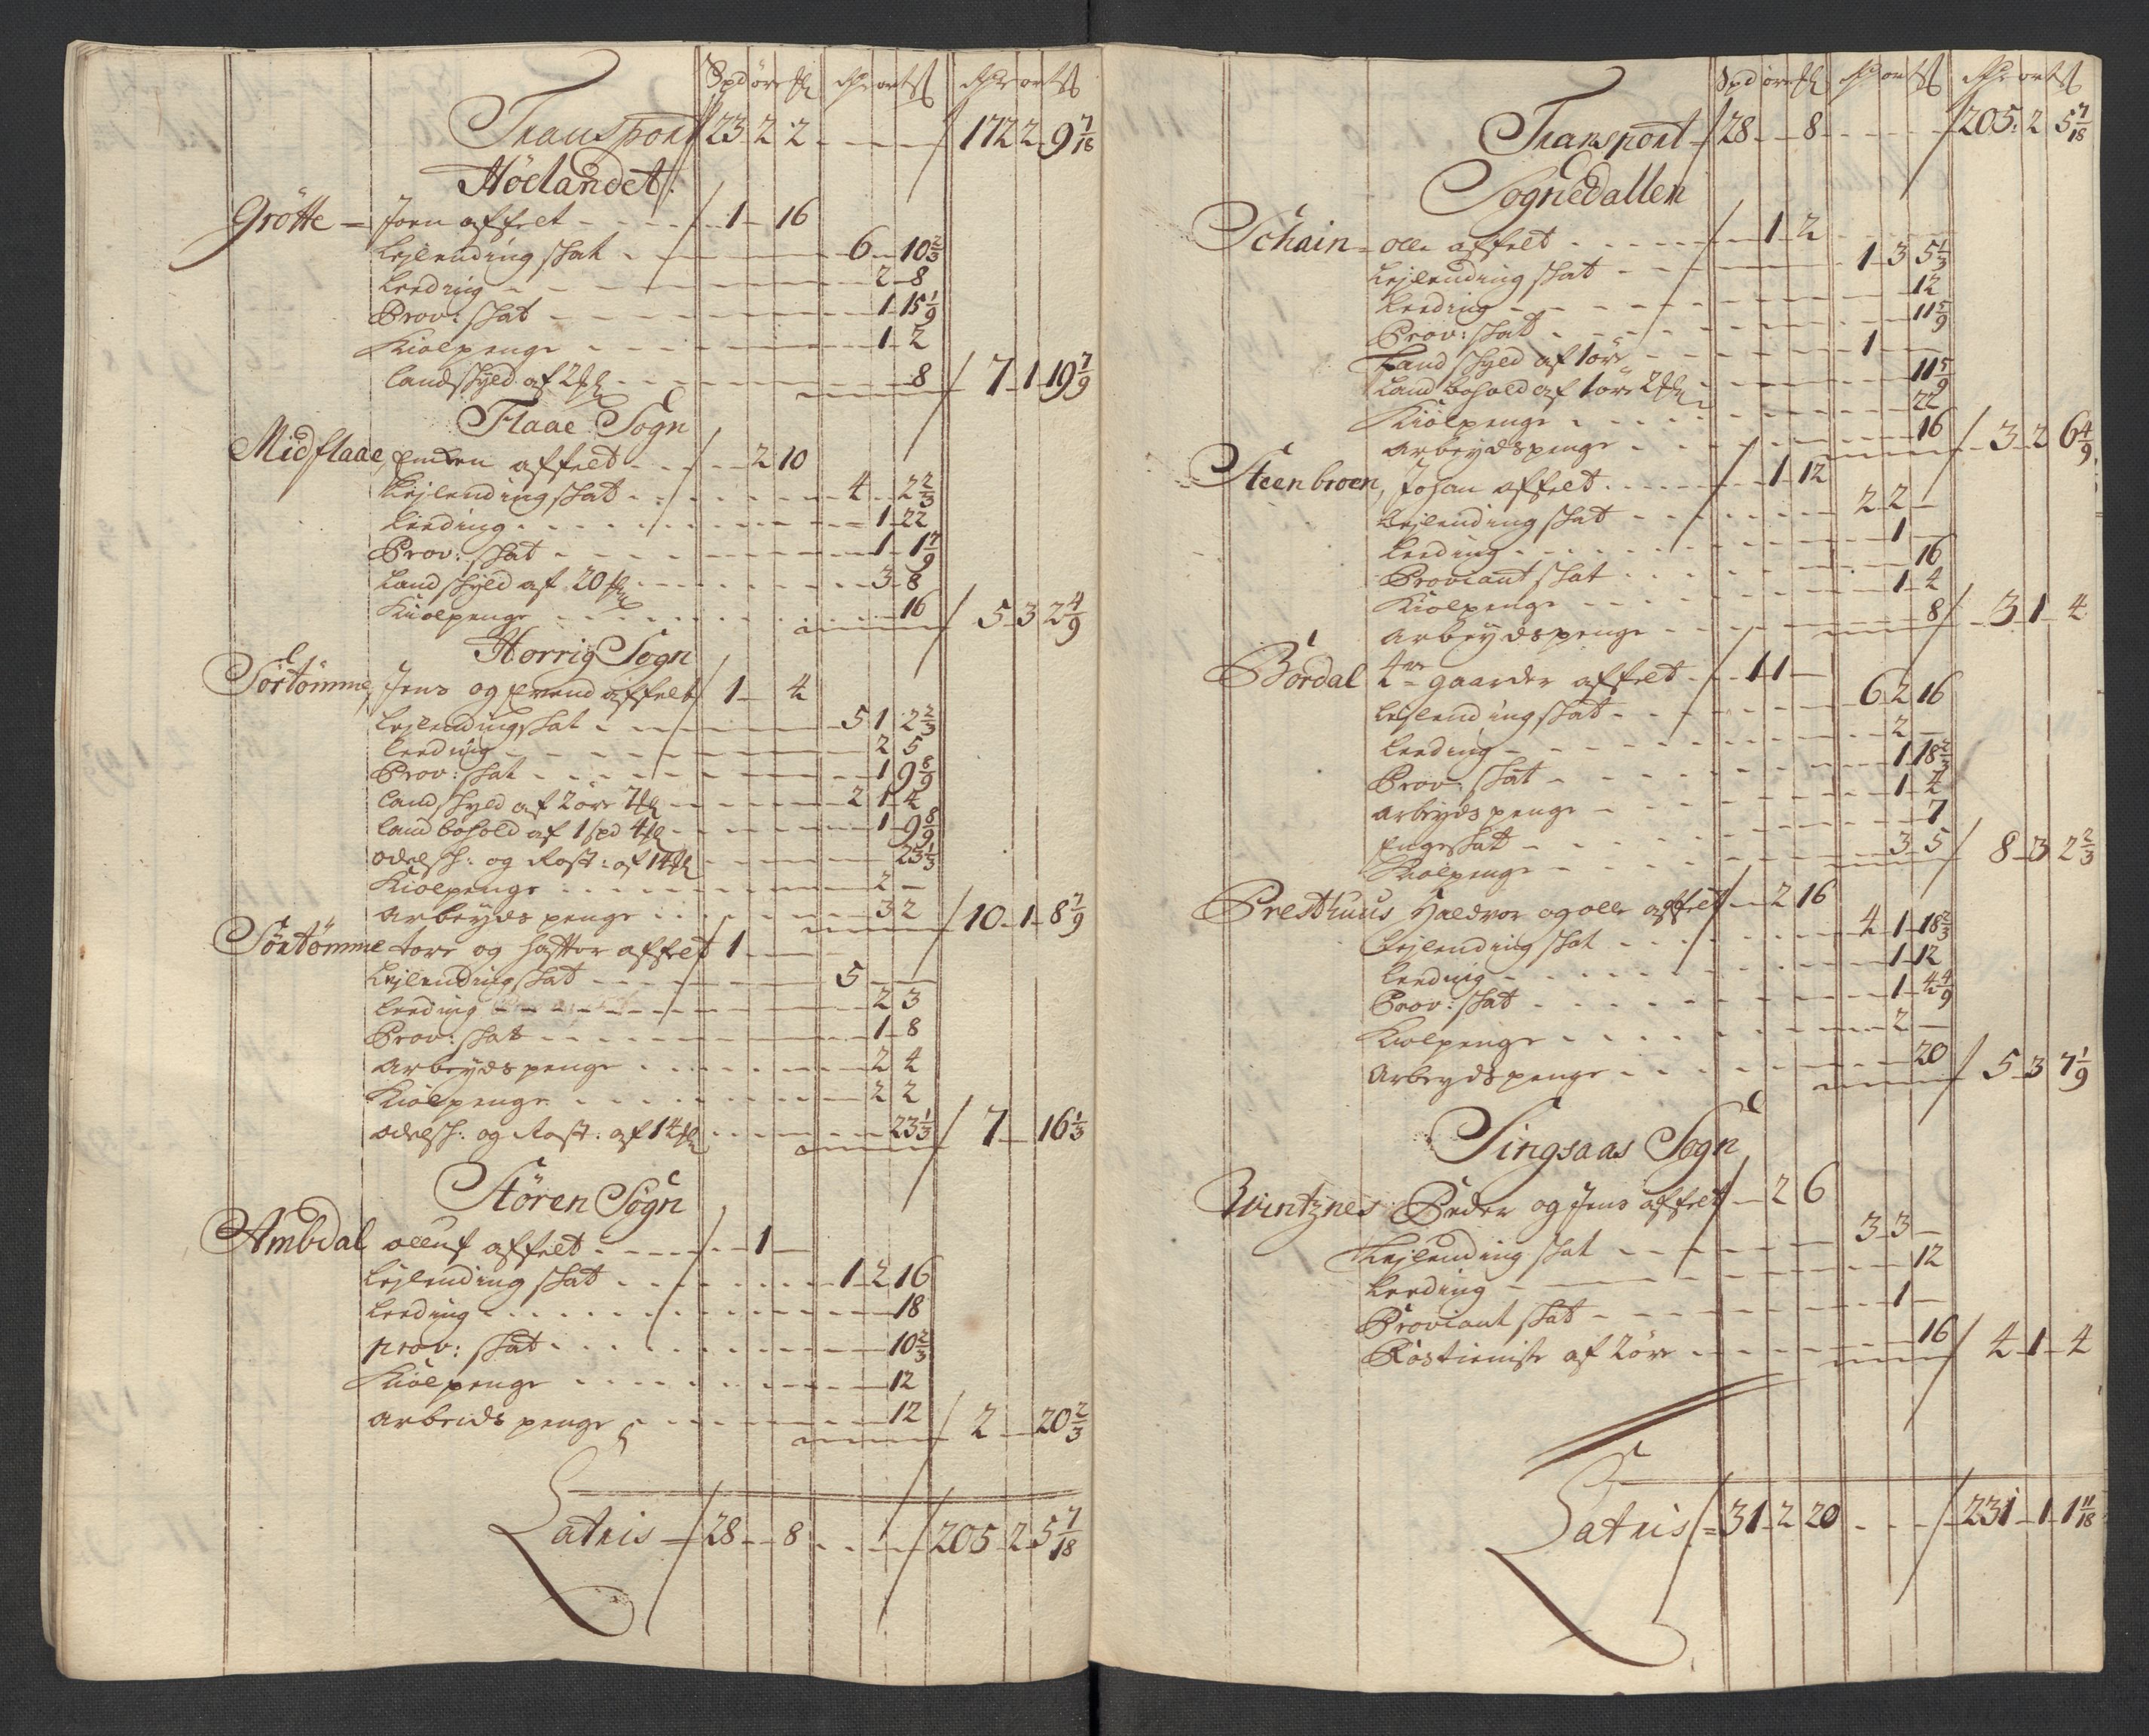 Spd öre ℔ Rdr ort ß Rdr ort ß
Transport 23 2 2 - - - 172 2 9 7/18
Höelandet
Grötte = Joen affelt - - - 1 - 16
Lejlending skat - 6 - 10 2/3
Leeding - - - 2 - 8
Prov: skat - - - 1 15 1/9
Kiolpenge - - - 1 - 2
Landskyld af 2 ℔ - - - 8 7 - 1 - 19 7/9
Flaae Sogn
Midflaae, affelt - - - 2 10
Lejlending skat - - - 4 - 2 2/3
Leeding - - - 1 - 22
Prov: skat - - - 1 - 1 7/9
Landskyld af 20 ℔ - - - 3 - 8
Kiolpenge - - - 16 5 - 3 2 4/9
Horrig Sogn
Sörtömme, Jens og Evend affelt 1 - 4
Lejlending skat - - - 5 1 2 2/3
Leeding - - - 2 5
Prov: skat - - - 1 9 8/9
Landskyld af 2 öre 7 ℔ - - - 2 1 4
Landbohold af 1 spd 4 ℔ - - - 1 9 8/9
Odelsk: og Rost: af 14 ℔ - - - 23 1/3
Kiolpenge - - - 2 -
Arbeyds penge - - - 3 2 10 - 1 - 8 7/9
Sörtömme tore og hattor affelt 1 - -
Lejlending skat - - - 5 - -
Leeding - - - 2 3
Prov: skat - - - 1 - 8
Arbeyds penge - - - 2 4
Kiolpenge - - - 2 2
Odelsk: og Rost: af 14 ℔ - - - 23 1/3 7 - 16 1/3
Stören Sogn
Ambdal olluf affelt - - - 1 -
Lejlending skat - - - 1 2 16
Leeding - - - 18
prov: skat - - - 10 2/3
Kiolpenge - - - 12
Arbeids penge - - - 12 2 - 20 2/3
Latris - 28 - - 8 - - - 205 2 5 7/18
Spd öre ℔ Rdr ort ß Rdr ort ß
Transport - 28 - - 8 - - - 205 - 2 5 7/18
Sognedallen
Schain - olle affelt - - - 1 - 2
Lejlending skat - - - 1 - 3 5 1/3
Leeding - - - 12
Prov: skat - - - 11 5/9
Landskyld af 1 öre - - - 1 -
Land bohold af 1 öre 2 ℔ - - - 11 5/9
Kiolpenge - - - 22
Arbeydspenge - - - 16 3 - 2 6 4/9
Steenbroen, Johan affelt - - - 1 12
Lejlending skat - - - 2 2 -
Leeding - - - 1 -
Proviant skat - - - 16
Kiolpenge - - - 1 - 4
Arbeydspenge - - - 8 3 1 - 4
Bordal 4re gaarder affelt - - 1 1 -
Lejlending skat - - - 6 2 16
Leeding - - - 2 -
Prov: skat - - - 1 18 2/3
Arbeyds penge - - - 1 - 4
Engeskat - - - 7
Kiolpenge - - - 3 5 8 - 3 2 2/3
Presthuus Haldvor og olle affelt - 2 16
Lejlending skat - - - 4 - 1 - 18 2/3
Leeding - - - 1 12
Prov: skat - - - 1 - 4 4/9
Kiolpenge - - - 2 -
Arbeydspenge - - - 20 5 - 3 7 1/9
Singsaas Sogn
Peder og Jens affelt - 2 6
Lejlending skat - - - 3 - 3 -
Leeding - - - 12
Proviant skat - - - 1 -
Rostieniste af 2 öre - - - 16 4 - 1 - 4
Latris - 31 - 2 20 - - - 231 - 1 - 1 11/18